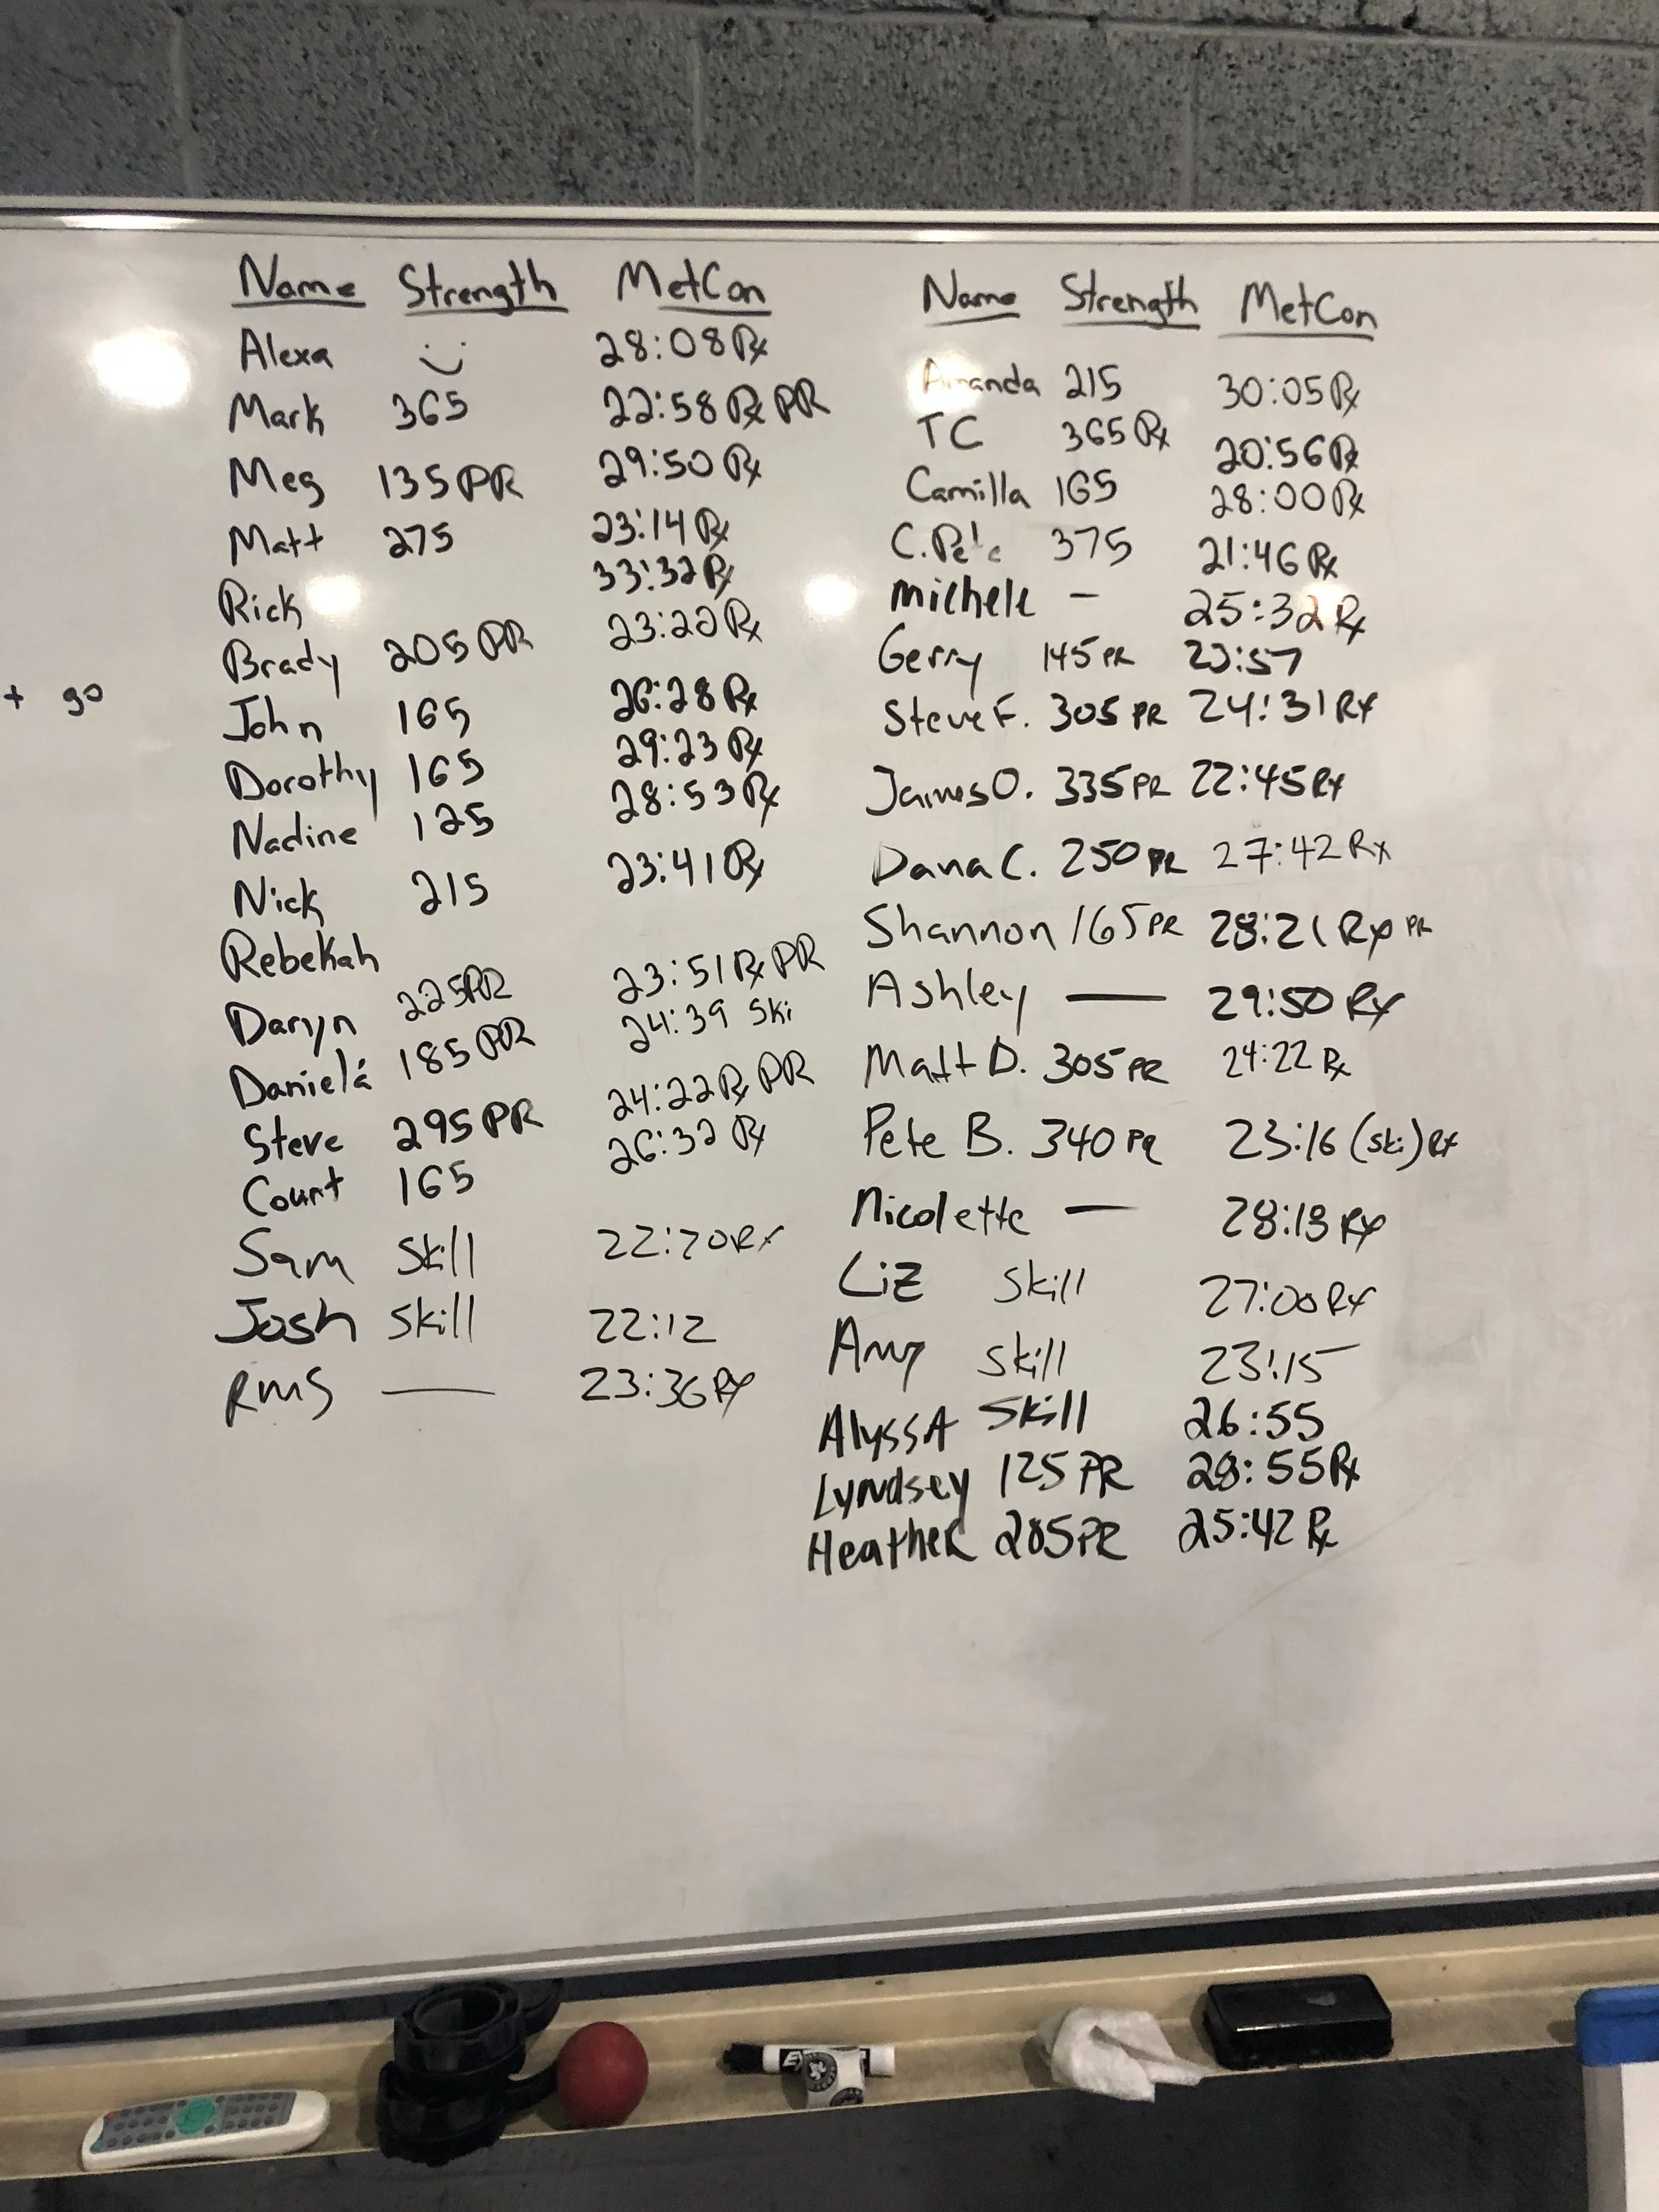 Name Strength MetCon
Alexa 28:08 Rx
Mark 365 22:58 Rx PR
Meg 135 PR 29:50 Rx
Matt 275 23:14 Rx
Rick 33:32 Rx
Brady 205 PR 23:20 Rx
John 165 26:28 Rx
Dorothy 165 29:23 Rx
Nadine 125 28:53 Rx
Nick 215 23:41 Rx
Rebekah
Daryn 225 PR 23:51 Rx PR
Daniela 185 PR 24:39 Ski
Steve 295 PR 24:22 Rx PR
Count 165 26:32 Rx
Sam Skill 22:20 Rx
Josh Skill 22:12
RMS — 23:36 Rx
+ go
Name Strength MetCon
Amanda 215 30:05 Rx
TC 365 Rx 20:56 Rx
Camilla 165 28:00 Rx
C. 375 21:46 Rx
Michele - 25:32 Rx
Gerry 145 PR
Steve F. 305 PR 24:31 Rx
James O. 335 PR 22:45 Rx
Dana C. 250 PR 27:42 Rx
Shannon 165 PR 28:21 Rx PR
Ashley — 29:50 Rx
Matt D. 305 PR 24:22 Rx
Pete B. 340 PR 23:16 (ski) Rx
Nicolette — Rx
Liz Skill 27:00 Rx
Amy Skill 23:15
AlyssA Skill 26:55
Lyndsey 125 PR 28:55 Rx
HeatheR 205 PR 25:42 Rx